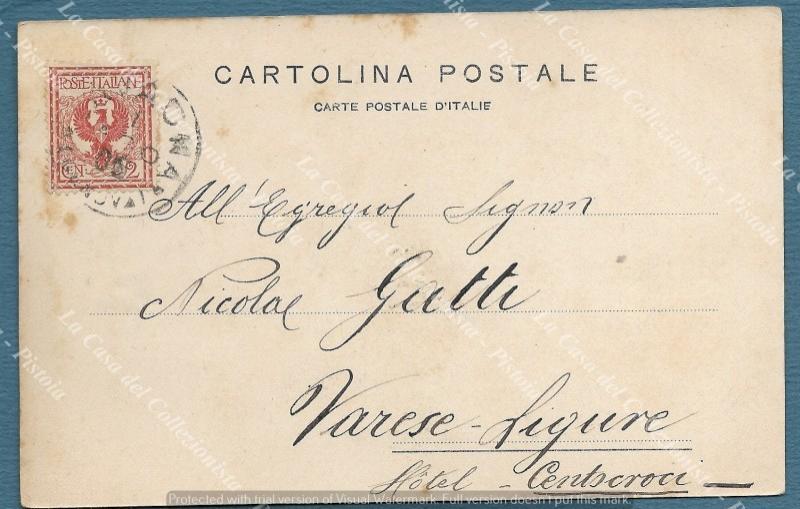 CARTOLINA POSTALE
CARTE POSTALE D'ITALIE
POSTE·ITALIANE
CEN. 2
All'Egregiol Signor
Nicolae Gatti
Varese-Ligure
Hôtel - Centocroci
La Casa del Collezionista - Pistoia
Protected with trial version of Visual Watermark. Full version doesn't put this mark.